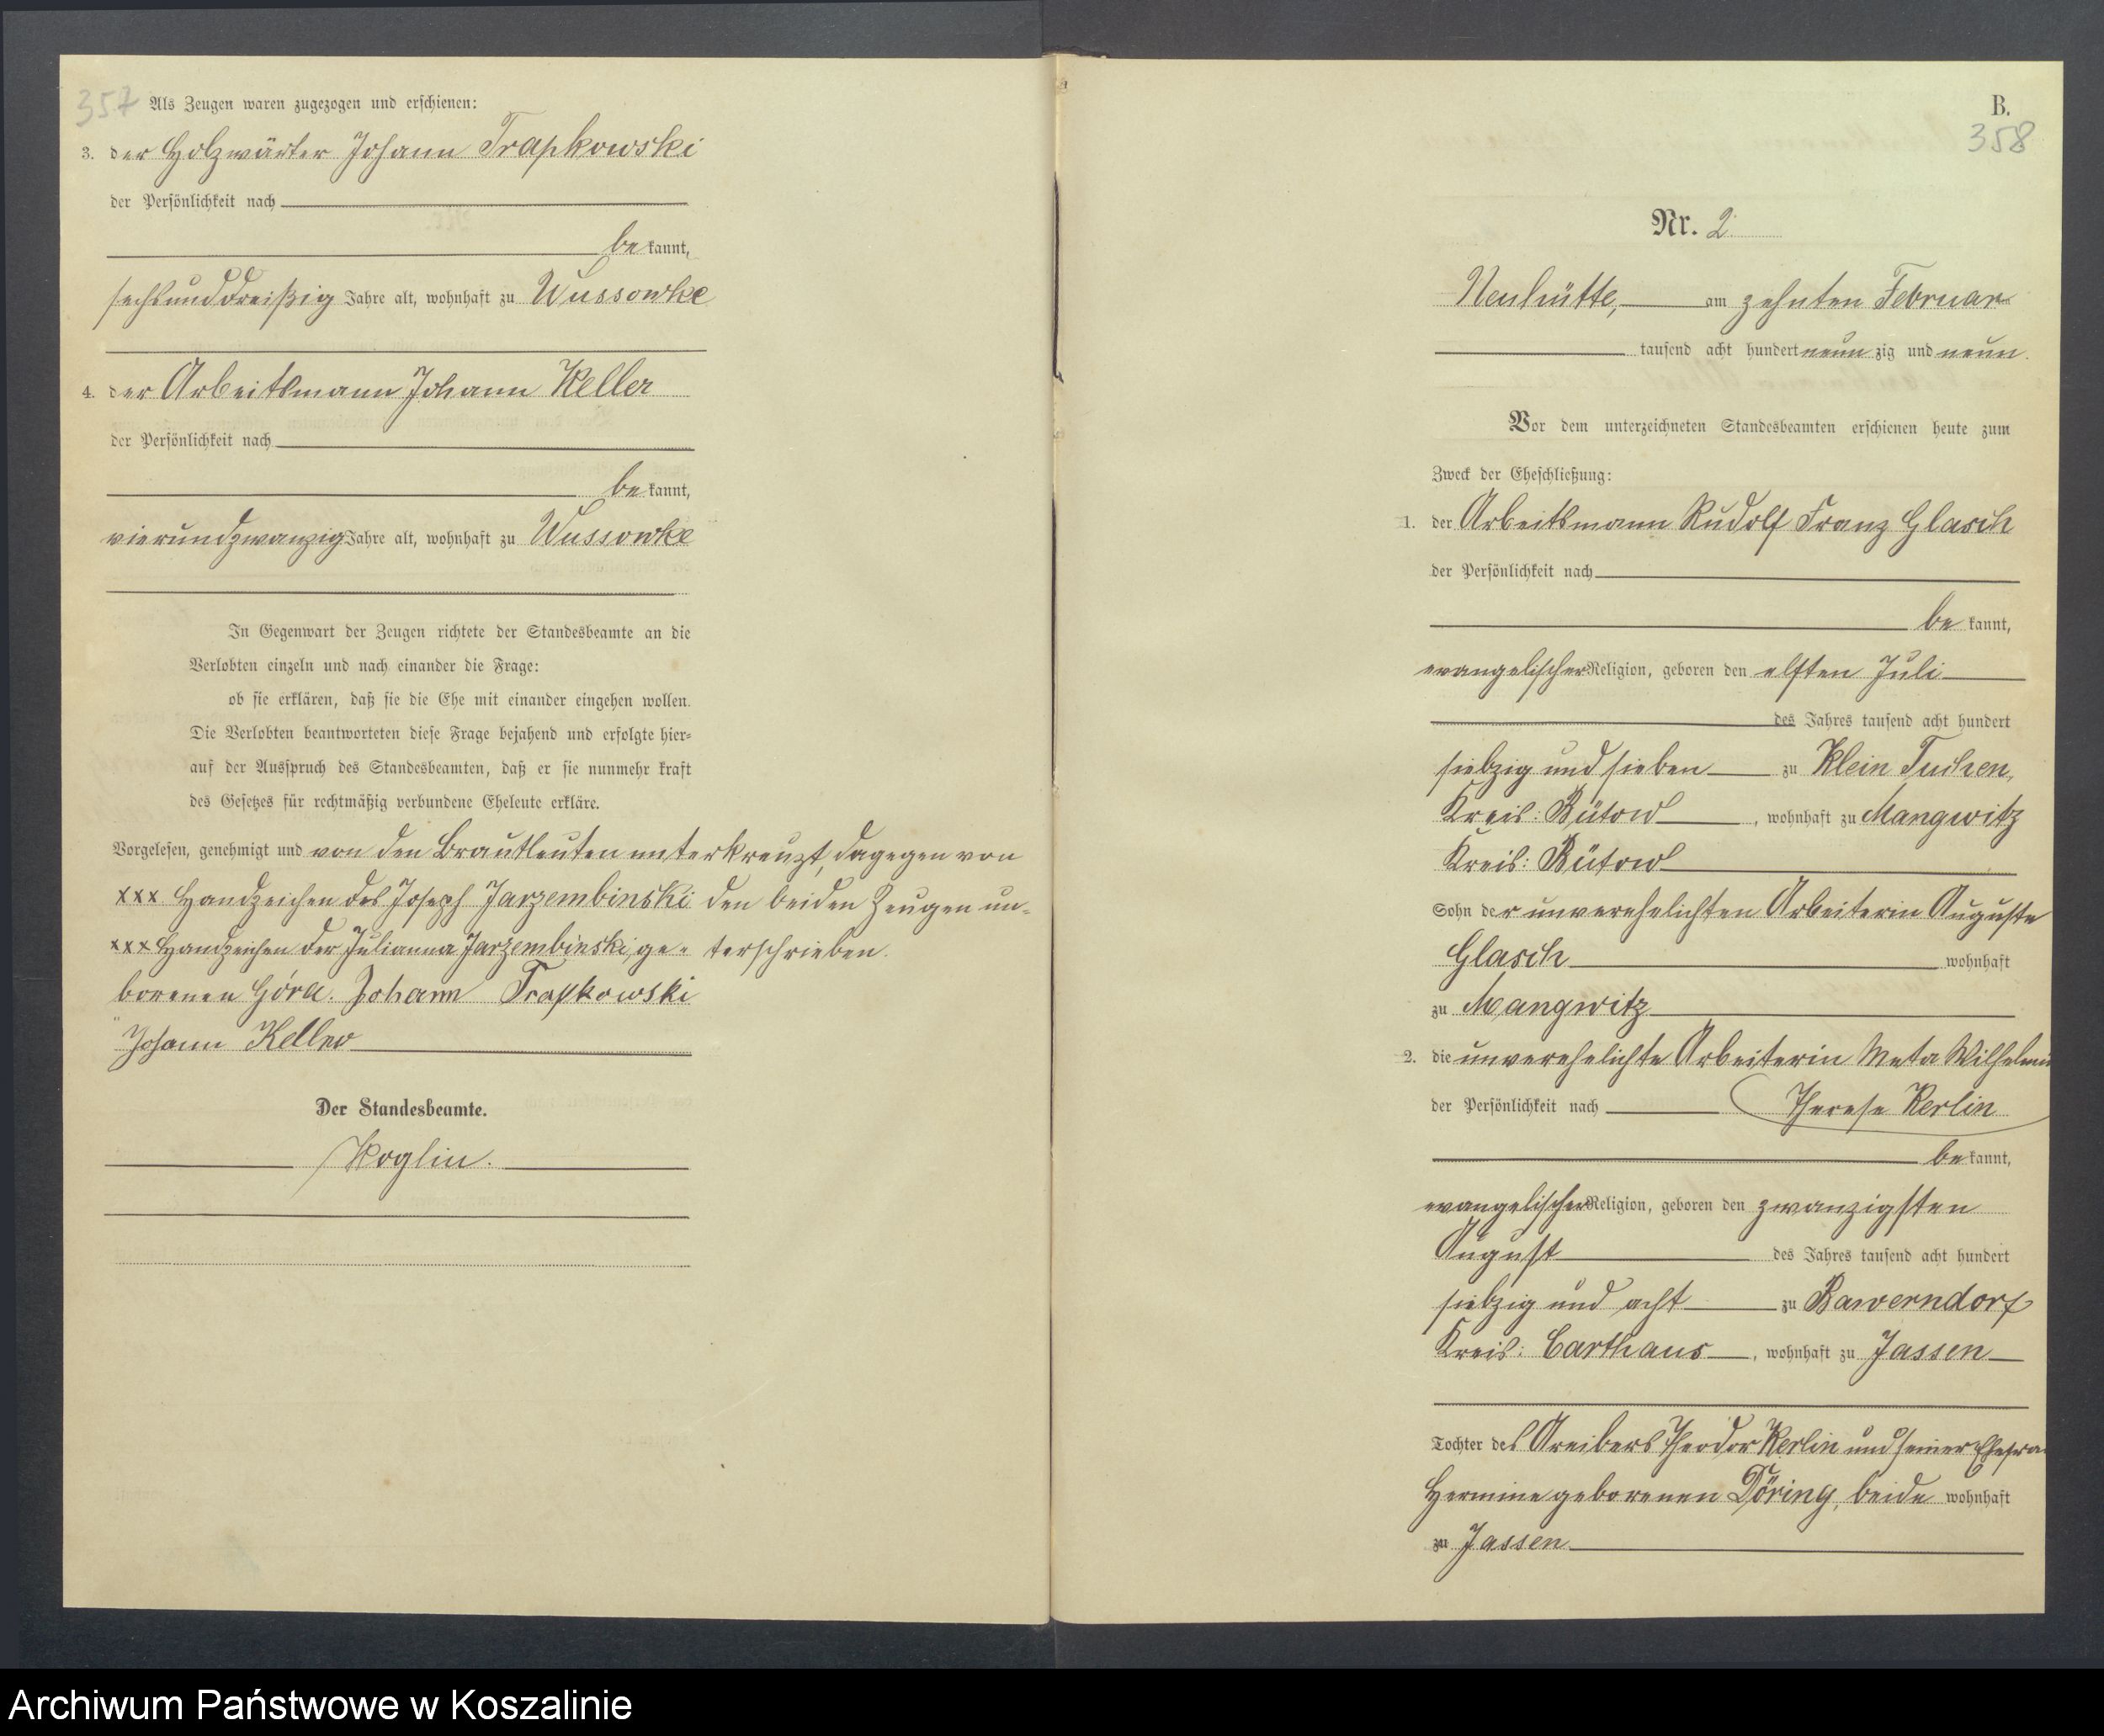 357
Als Zeugen waren zugezogen und erschienen:
3. der Holzwärter Johann Trapkowski
der Persönlichkeit nach
be kannt,
sechsunddreißig Jahre alt, wohnhaft zu Wussowke
4. der Arbeitsmann Johann Keller
der Persönlichkeit nach
be kannt,
vierundzwanzig Jahre alt, wohnhaft zu Wussowke
In Gegenwart der Zeugen richtete der Standesbeamte an die
Verlobten einzeln und nach einander die Frage:
ob sie erklären, daß sie die Ehe mit einander eingehen wollen.
Die Verlobten beantworteten diese Frage bejahend und erfolgte hier-
auf der Ausspruch des Standesbeamten, daß er sie nunmehr kraft
des Gesetzes für rechtmäßig verbundene Eheleute erkläre.
Vorgelesen, genehmigt und von den Brautleuten unterkreuzt, dagegen von
xxx Handzeichen des Joseph Jarzembinski den beiden Zeugen un-
xxx Handzeichen der Julianna Jarzembinski, ge- terschrieben.
borenen Góra. Johann Trapkowski
Johann Keller
Der Standesbeamte.
Koglin.
B.
358
Nr. 2
Neuhütte, am zehnten Februar
tausend acht hundert neun zig und neun.
Vor dem unterzeichneten Standesbeamten erschienen heute zum
Zweck der Eheschließung:
1. der Arbeitsmann Rudolf Franz Glasch
der Persönlichkeit nach
be kannt,
evangelischer Religion, geboren den elften Juli
des Jahres tausend acht hundert
siebzig und sieben zu Klein Tuchen,
Kreis: Bütow, wohnhaft zu Mangwitz
Kreis: Bütow
Sohn der unverehelichten Arbeiterin Auguste
Glasch wohnhaft
zu Mangwitz
2. die unverehelichte Arbeiterin Meta Wilhelmi
der Persönlichkeit nach Therese Kerlin
be kannt,
evangelischer Religion, geboren den zwanzigsten
August des Jahres tausend acht hundert
siebzig und acht zu Bawerndorf
Kreis: Carthaus, wohnhaft zu Jassen
Tochter des Theodor Kerlin und seiner Ehefra
Hermine geborenen Döring, beide wohnhaft
zu Jassen
Archiwum Państwowe w Koszalinie